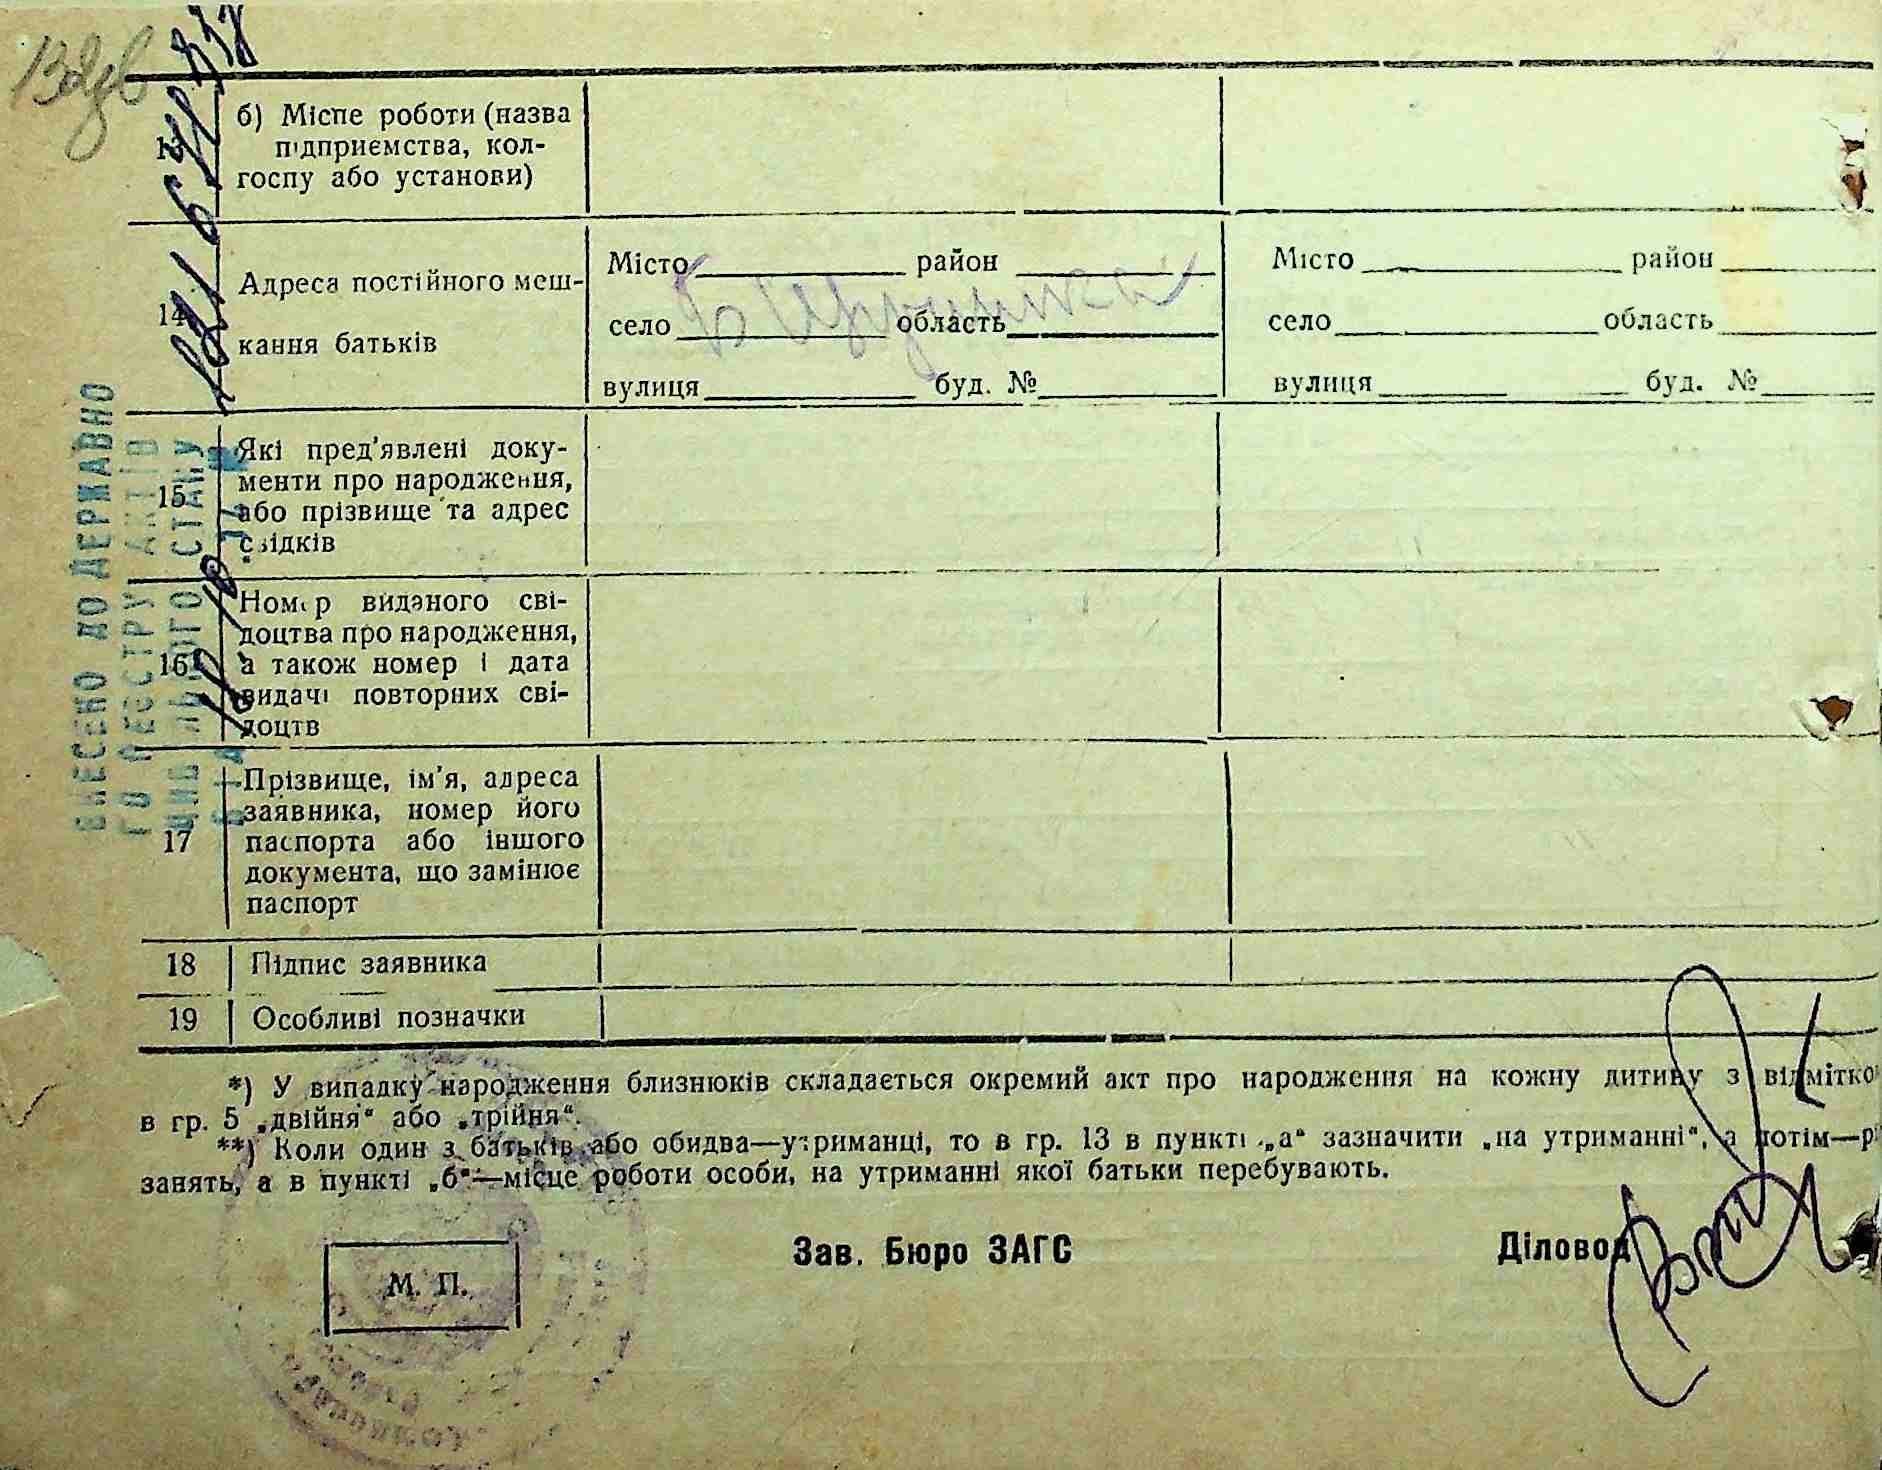 13
б) Місце роботи (назва
підприємства, кол-
госпу або установи)
14
Адреса постійного меш-
кання батьків
Місто район
село область
вулиця буд. №
Місто район
село область
вулиця буд. №
15
Які пред'явлені доку-
менти про народження,
або прізвище та адрес
свідків
16
Номер виданого сві-
доцтва про народження,
а також номер і дата
видачі повторних сві-
доцтв
17
Прізвище, ім'я, адреса
заявника, номер його
паспорта або іншого
документа, що замінює
паспорт
18 Підпис заявника
19 Особливі позначки
ВНЕСЕНО ДО ДЕРЖАВНО
ГО РЕЄСТРУ АКТІВ
ЦИВІЛЬНОГО СТАНУ
ВІД
*) У випадку народження близнюків складається окремий акт про народження на кожну дитину з відмітко
в гр. 5 „двійня“ або „трійня“.
**) Коли один з батьків або обидва—утриманці, то в гр. 13 в пункті „а“ зазначити „на утриманні“, а потім—р
занять, а в пункті „б“—місце роботи особи, на утриманні якої батьки перебувають.
М. П.
Зав. Бюро ЗАГС
Діловод